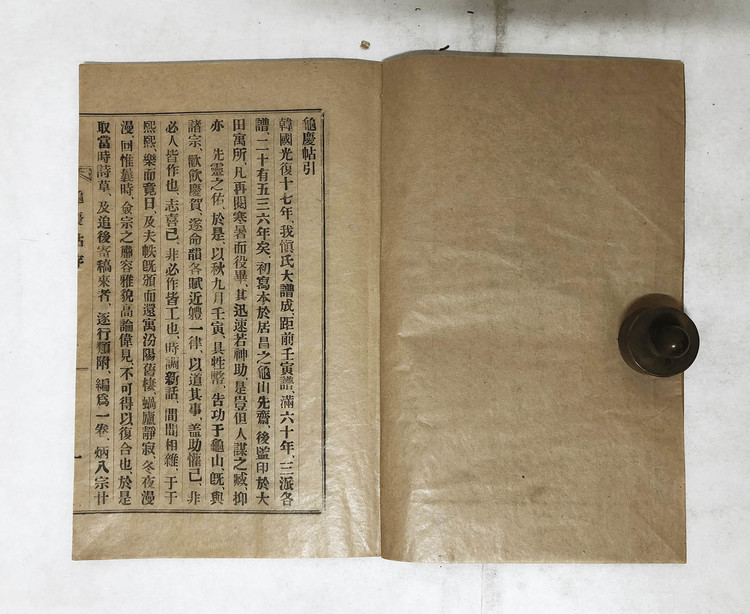 龜慶帖引
韓國光復十七年、我愼氏大譜成、距前壬寅譜、滿六十年、三派各
譜、二十有五三六年矣、初寫本於居昌之龜山先齋、後監印於大
田寓所、凡再閱寒暑而役畢、其迅速若神助、是豈但人謀之臧、抑
亦 先靈之佑、於是、以秋九月壬寅、具牲幣、告功于龜山、旣與
諸宗、歡飮慶賀、遂命韻各賦近軆一律、以道其事、盖助懽已、非
必人皆作也、志喜已、非必作皆工也、時調新話、間相雜、于于
熙熙、樂而竟日、及夫帙旣頒而還寓汾陽舊棲、蝸廬靜寂、冬夜漫
漫、回惟曩時、僉宗之容雅貌高論偉見、不可得以復合也、於是
取當時詩草、及追後寄稿來者、逐行類附、編爲一卷、炳八宗廿
龜慶帖序
一